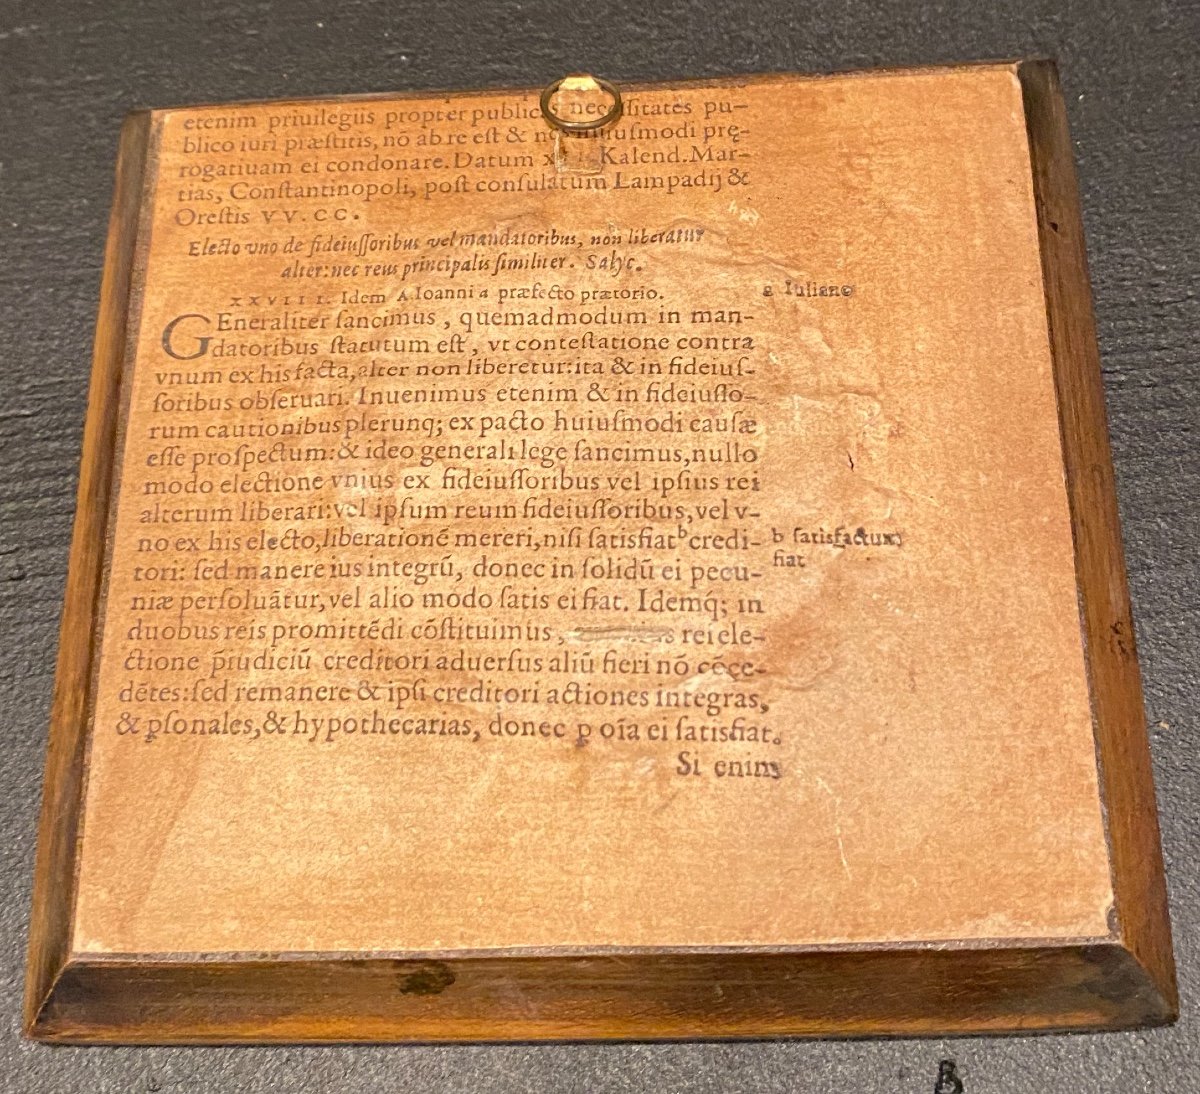 etenim priuilegus propter publicas necessitates pu-
blico iuri præstitis, nō ab re est & nos huiusmodi prę-
rogatiuam ei condonare. Datum Kalend. Mar-
tias, Constantinopoli, post consulatum Lampadij &
Orestis VV. CC.
Electo vno de fideiussoribus vel mandatoribus, non liberatur
alter: nec reus principalis similiter. Salyc.
XXVIII. Idem A. Ioanni a præfecto prætorio.
a Iuliano
GEneraliter sancimus, quemadmodum in man-
datoribus statutum est, vt contestatione contra
vnum ex his facta, alter non liberetur: ita & in fideius-
soribus obseruari. Inuenimus etenim & in fideiusso-
rum cautionibus plerunq; ex pacto huiusmodi causæ
esse prospectum: & ideo generali lege sancimus, nullo
modo electione vnius ex fideiussoribus vel ipsius rei
alterum liberari: vel ipsum reum fideiussoribus, vel v-
no ex his electo, liberationē mereri, nisi satisfiat b credi-
b satisfactum
fiat
tori: sed manere ius integrū, donec in solidū ei pecu-
niæ persoluātur, vel alio modo satis ei fiat. Idemq́; in
duobus reis promittēdi cōstituimus, rei ele-
ctione p̄iudiciū creditori aduersus aliū fieri nō cōce-
dētes: sed remanere & ipsi creditori actiones integras,
& ꝑsonales, & hypothecarias, donec ꝑ oīa ei satisfiat.
Si enim